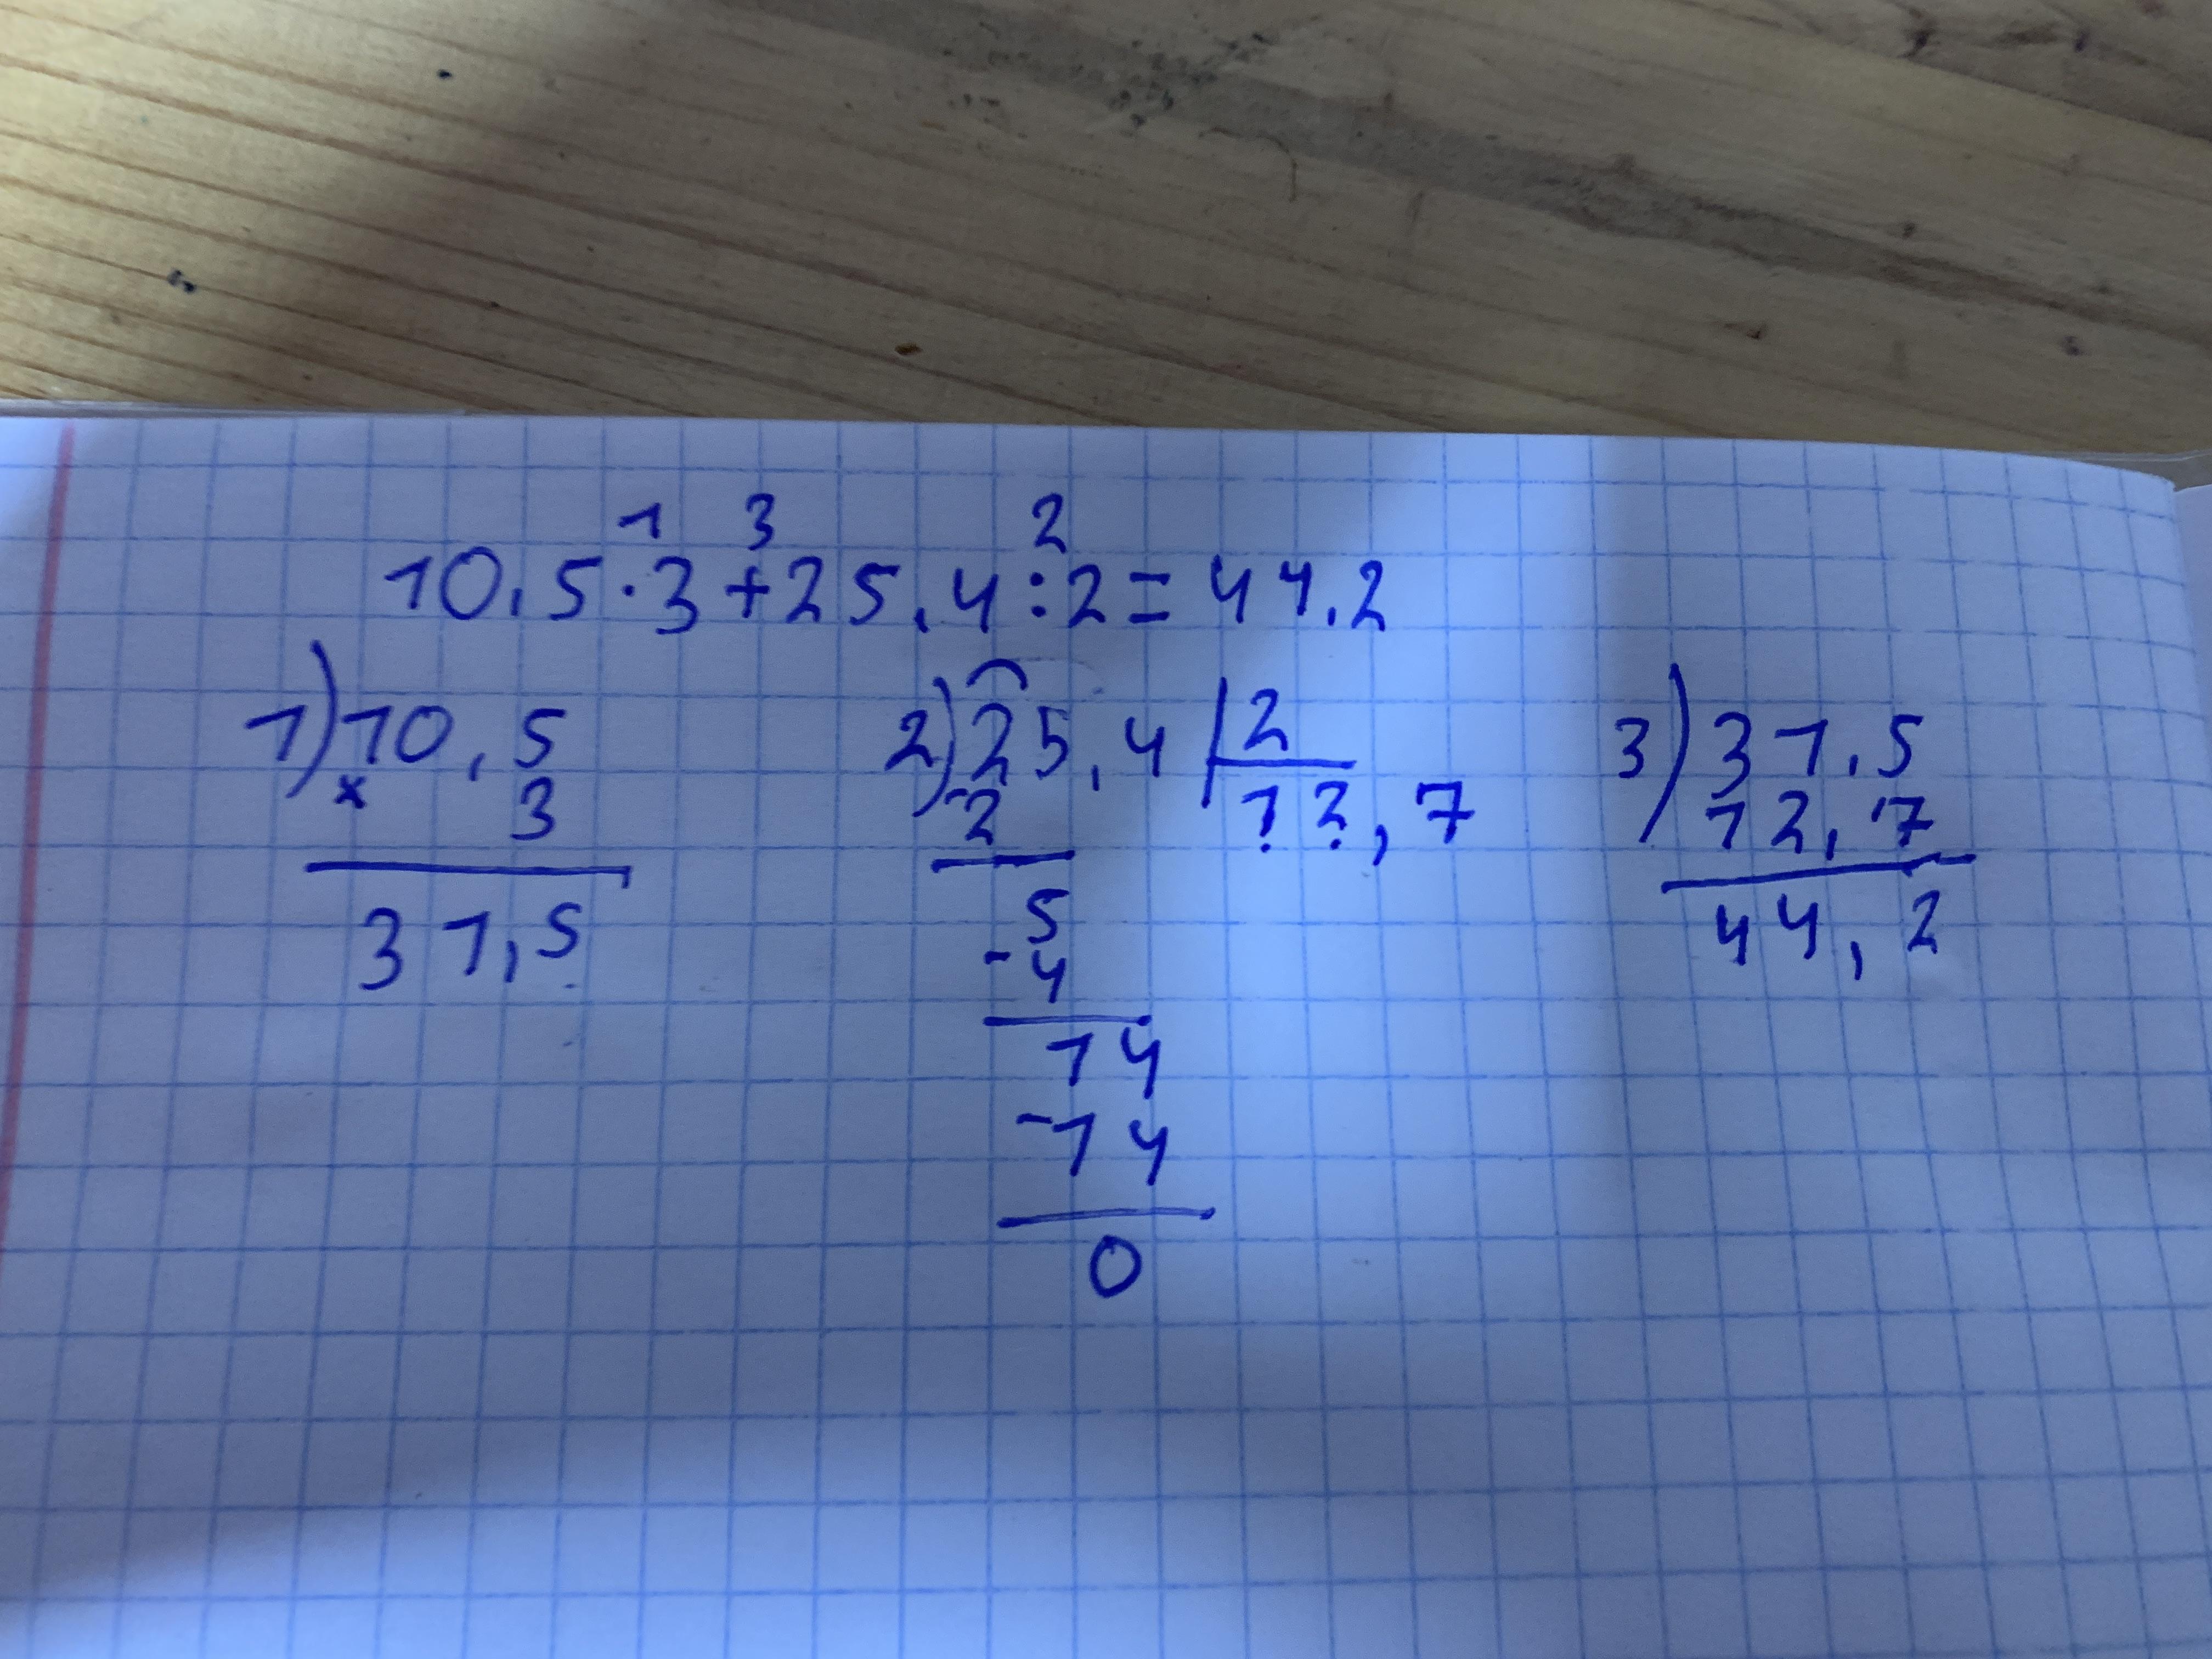 1 3 2
10,5·3+25,4:2=44,2
1) 10,5 2) 25,4 2 3) 31,5
× 3 -2 12,7 12,7
31,5 5 44,2
-4
14
-14
0